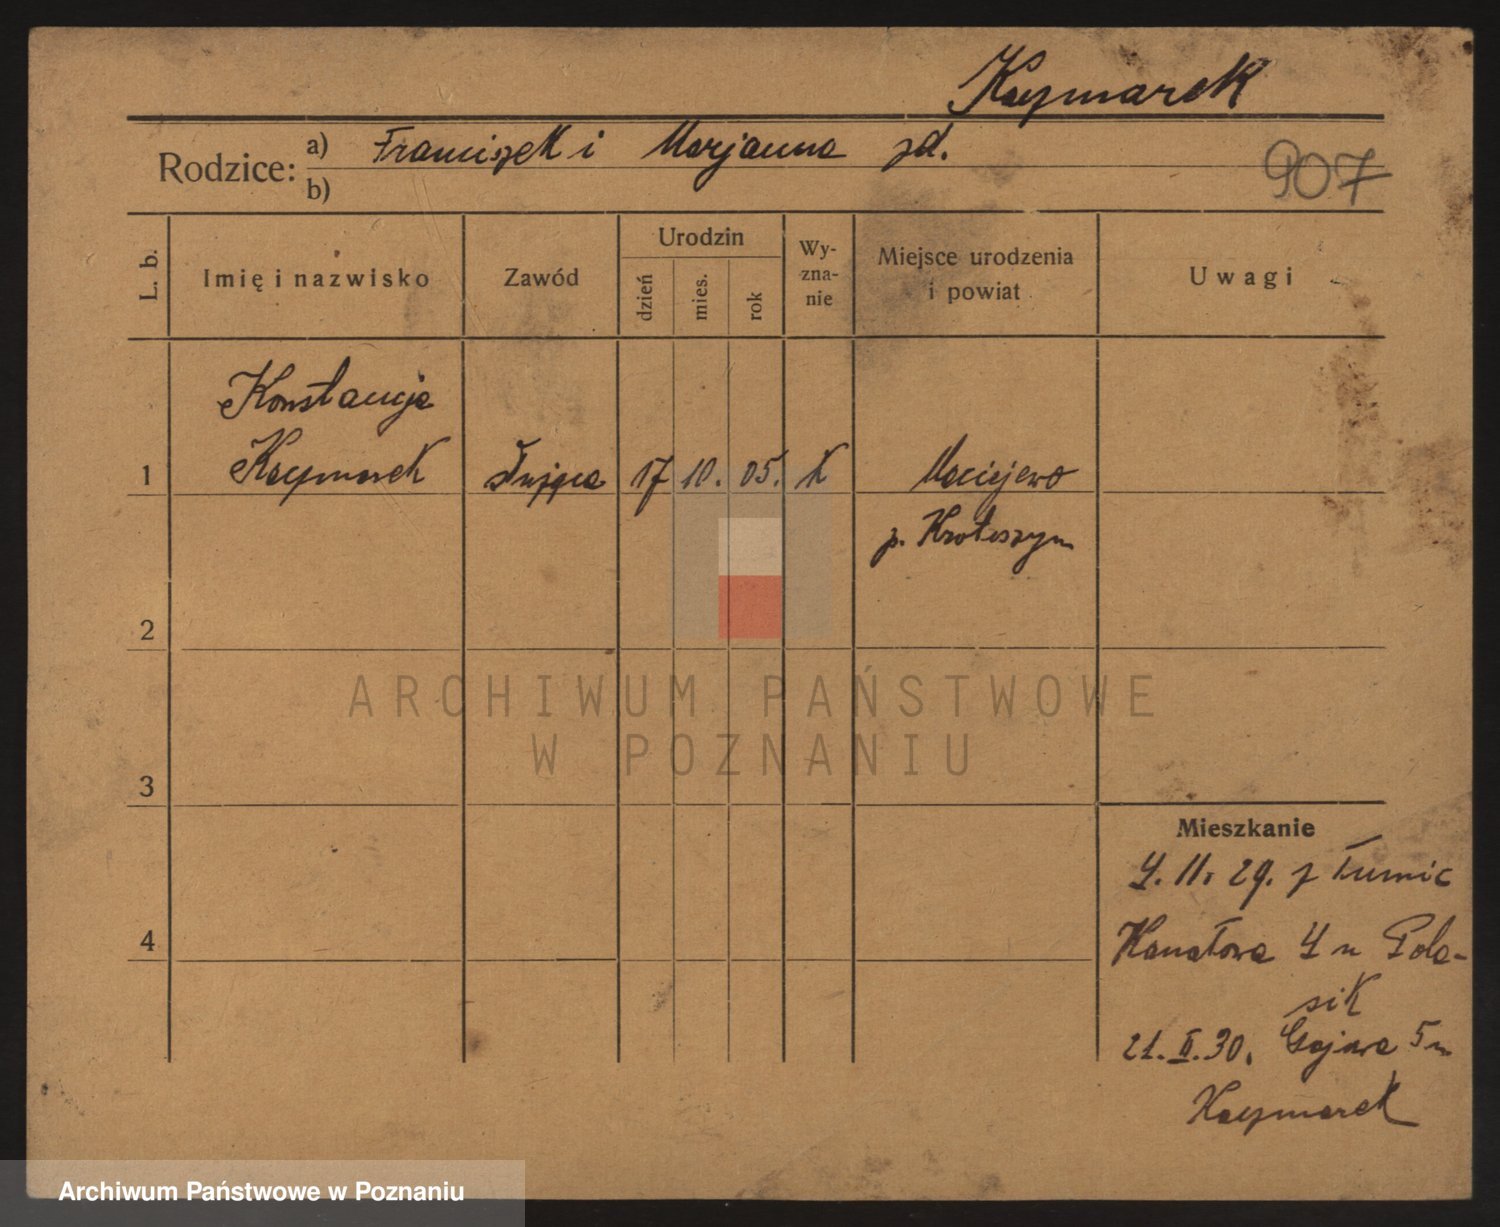 Kaczmarek
Rodzice: a) Franciszek i Marjanna zd.
b)
907
L. b.
Imię i nazwisko
Zawód
Urodzin
dzień
mies.
rok
Wy-
zna-
nie
Miejsce urodzenia
i powiat
Uwagi
Konstancja
1 Kaczmarek służąca 17 10. 05. K Maciejewo
p. Krotoszyn
2
3
4
ARCHIWUM PAŃSTWOWE
W POZNANIU
Mieszkanie
4. 11. 29. z
Kanałowa 4 u Pola-
sik
21. II. 30. Gajowa 5 u
Kaczmarek
Archiwum Państwowe w Poznaniu